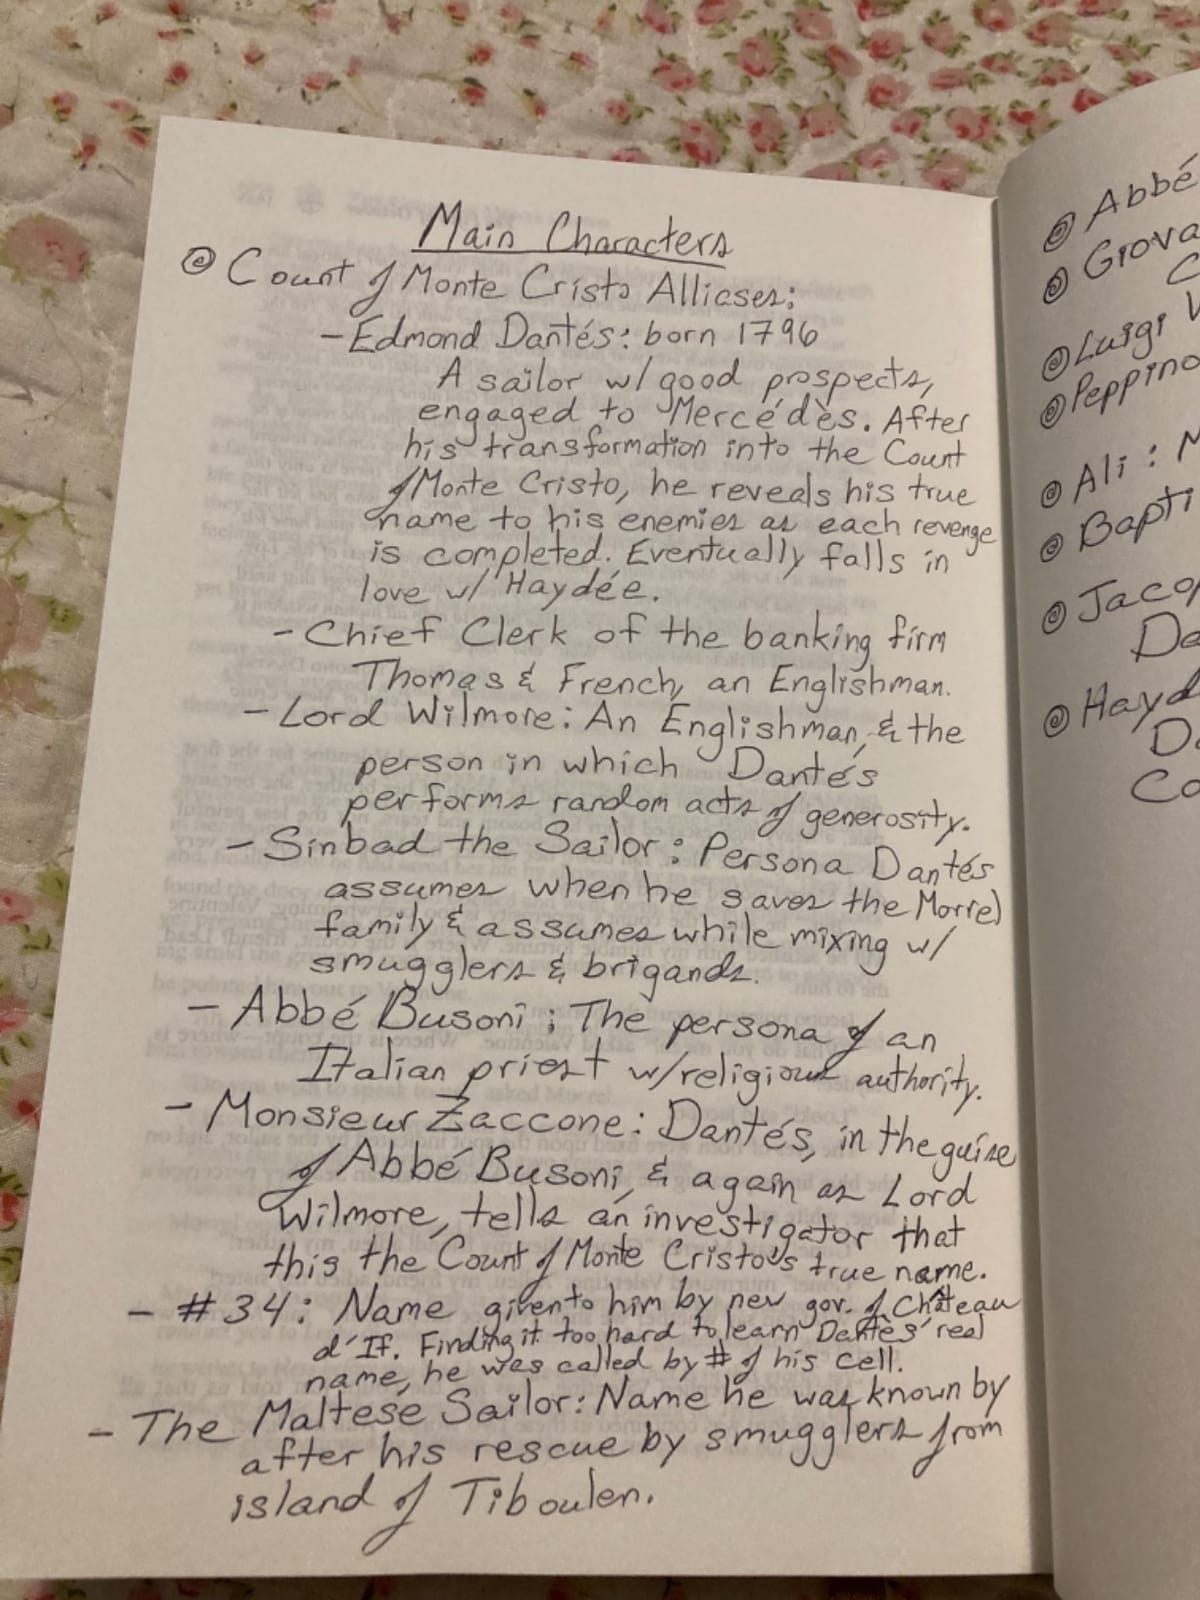 Main Characters
Count of Monte Cristo Allicses:
- Edmond Dantés: born 1796
A sailor w/ good prospects,
engaged to Mercédès. After
his transformation into the Count
of Monte Cristo, he reveals his true
name to his enemies as each revenge
is completed. Eventually falls in
love w/ Haydée.
- Chief Clerk of the banking firm
Thomas & French, an Englishman.
- Lord Wilmore: An Englishman, & the
person in which Dantés
performs random acts of generosity.
- Sinbad the Sailor: Persona Dantés
assumes when he saves the Morrel
family & assumes while mixing w/
smugglers & brigands.
- Abbé Busoni: The persona of an
Italian priest w/ religious authority.
- Monsieur Zaccone: Dantés, in the guise
of Abbé Busoni, & again as Lord
Wilmore, tells an investigator that
this the Count of Monte Cristo's true name.
- #34: Name given to him by new gov. of Château
d'If. Finding it too hard to learn Dantès' real
name, he was called by # of his cell.
- The Maltese Sailor: Name he was known by
after his rescue by smugglers from
island of Tiboulen.
Abbé
Giova
C
Luigi V
Peppino
Ali: M
Bapti
Jacop
De
Hayd
Da
Co